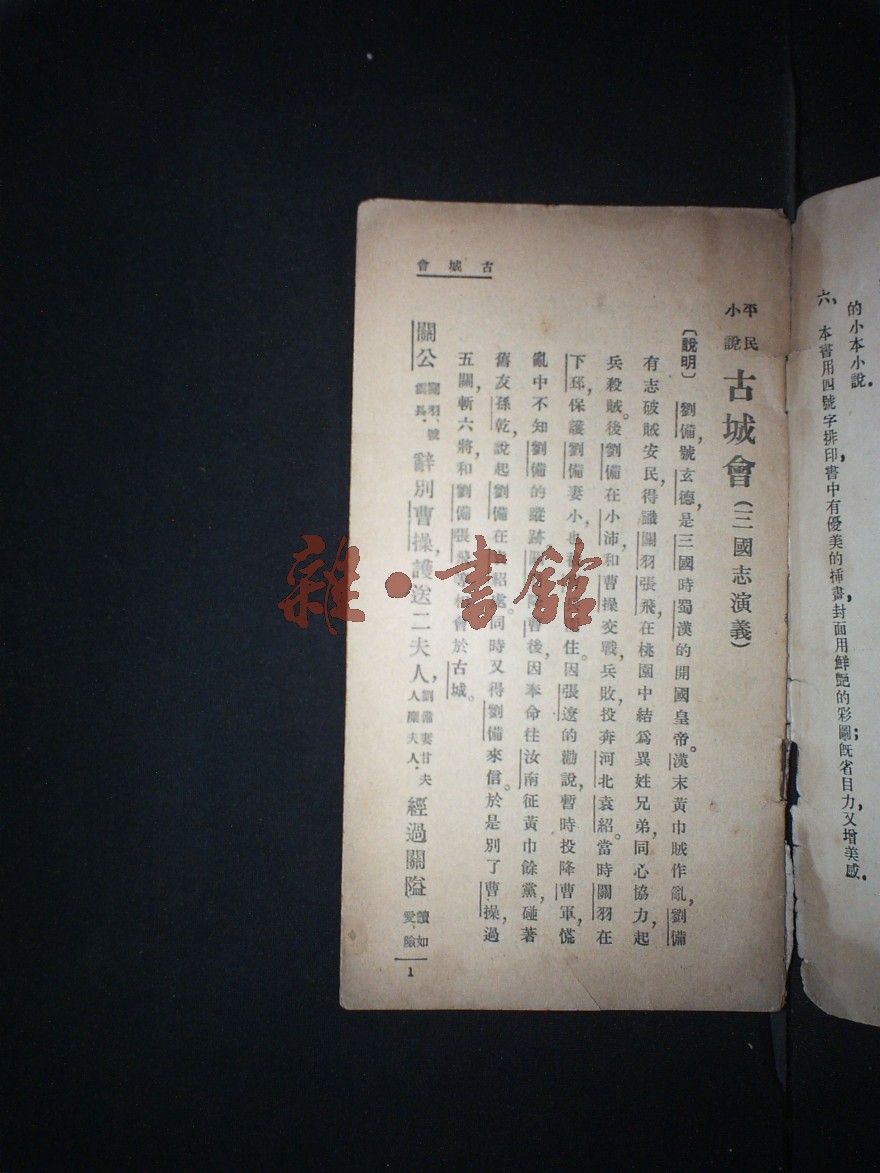 的小本小說.
六、本書用四號字排印,書中有優美的插畫,封面用鮮艷的彩圖;既省目力,又增美感.
平民小說 古城會(三國志演義)
〔說明〕劉備,號玄德,是三國時蜀漢的開國皇帝。漢末黃巾賊作亂,劉備
有志破賊安民,得識關羽張飛,在桃園中結爲異姓兄弟,同心協力,起
兵殺賊。後劉備在小沛,和曹操交戰,兵敗,投奔河北袁紹。當時關羽在
下邳,保護劉備妻小,也住。因張遼的勸說,暫時投降曹軍,慌
亂中不知劉備的蹤跡曹後,因奉命往汝南征黃巾餘黨,碰著
舊友孫乾,說起劉備在紹處。同時又得劉備來信。於是別了曹操,過
五關,斬六將,和劉備張會於古城。
關公關羽,號雲長.辭別曹操,護送二夫人,劉備妻甘夫人糜夫人.經過關隘讀如愛,險
古城會
1
雜·書館